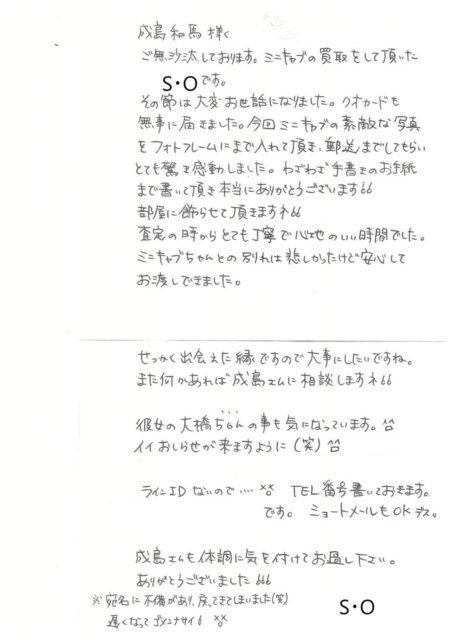 成島和馬 様く
ご無沙汰しております。ミニキャブの買取をして頂いた
S・Oです。
その節は大変お世話になりました。クオカードも
無事に届きました。今回ミニキャブの素敵な写真
をフォトフレームにまで入れて頂き、郵送までしてもらい
とても驚き感動しました。わざわざ手書きのお手紙
まで書いて頂き本当にありがとうございます
部屋に飾らせて頂きますネ
査定の時からとても丁寧で心地のいい時間でした。
ミニキャブちゃんとの別れは悲しかったけど安心して
お渡しできました。
せっかく出会えた縁ですので大事にしたいですね。
また何かあれば成島さんに相談しますネ
彼女の大橋ちゃんの事も気になっています。^^
イイおしらせが来ますように(笑)^^
ラインIDないので‥‥ TEL番号書いておきます。
です。 ショートメールもOKデス。
成島さんも体調に気を付けてお過し下さい。
ありがとうございました
※宛名に不備があり、戻ってきてしまいました(笑)
遅くなってゴメンナサイ
S・O